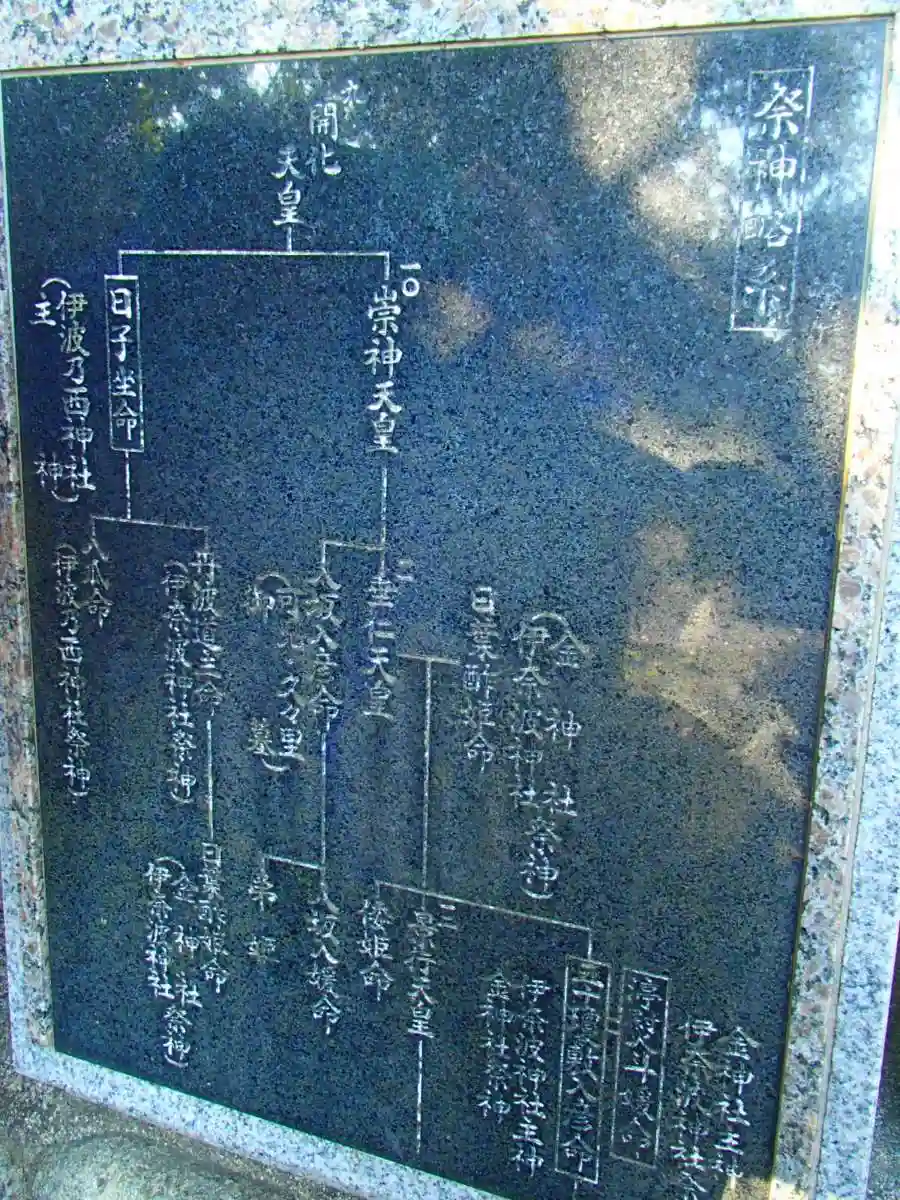 祭神略系
九
開化
天皇
一〇
崇神天皇
日子坐命
(伊波乃西神社
主神)
金神社祭神)
(伊奈波神社
日葉酢姫命
一一
垂仁天皇
八坂入彦命
久々里
墓)
丹波道主命
(伊奈波神社祭神)
八瓜命
(伊波乃西神社祭神)
金神社主神
伊奈波神社
伊奈波神社主神
金神社祭神
一二
景行天皇
倭姫命
八坂入媛命
弟姫
日葉酢姫命
(金神社祭神)
伊奈波神社